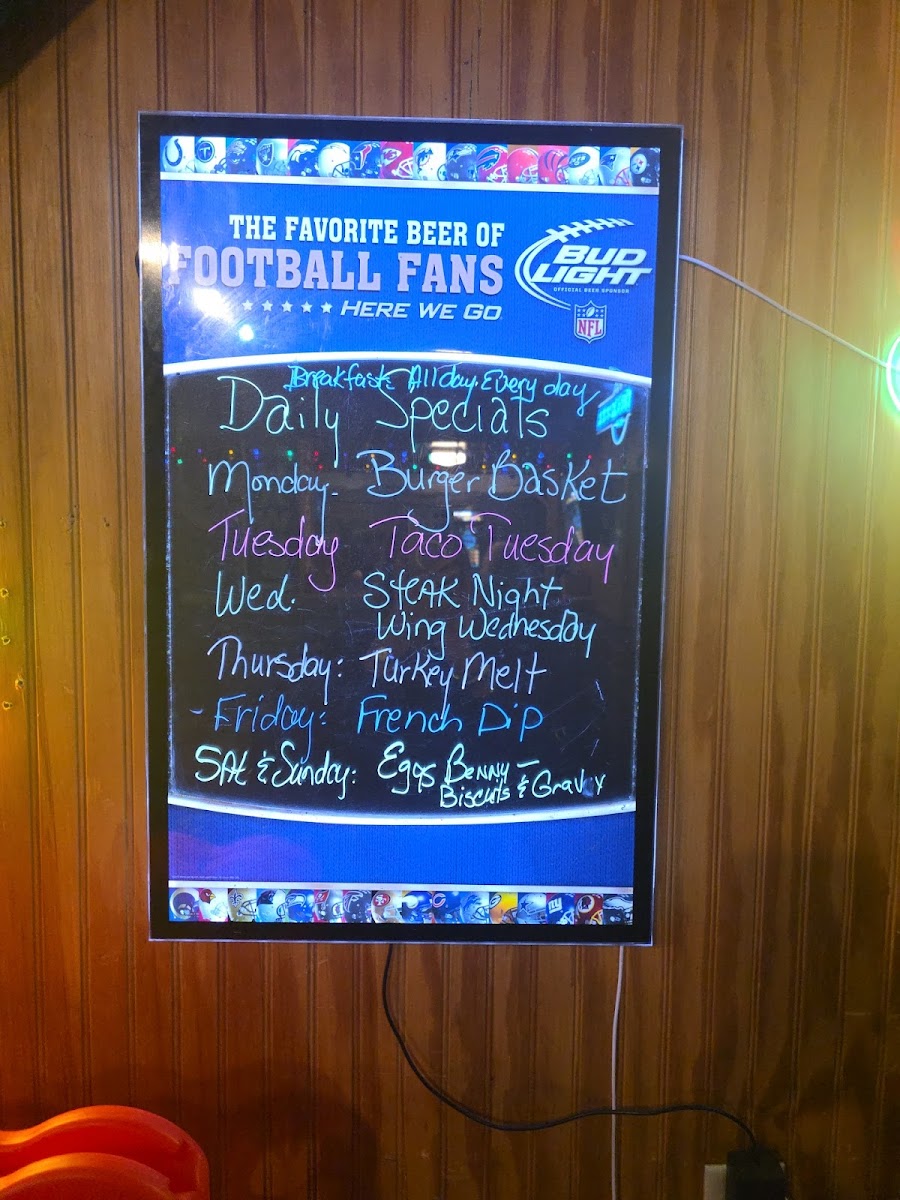 THE FAVORITE BEER OF
FOOTBALL FANS
HERE WE GO
BUD LIGHT
OFFICIAL BEER SPONSOR
NFL
Breakfast All day Every day
Daily Specials
Monday- Burger Basket
Tuesday Taco Tuesday
Wed. Steak Night
Wing Wednesday
Thursday: Turkey Melt
- Friday: French Dip
SAt & Sunday: Eggs Benny -
Biscuits & Gravy